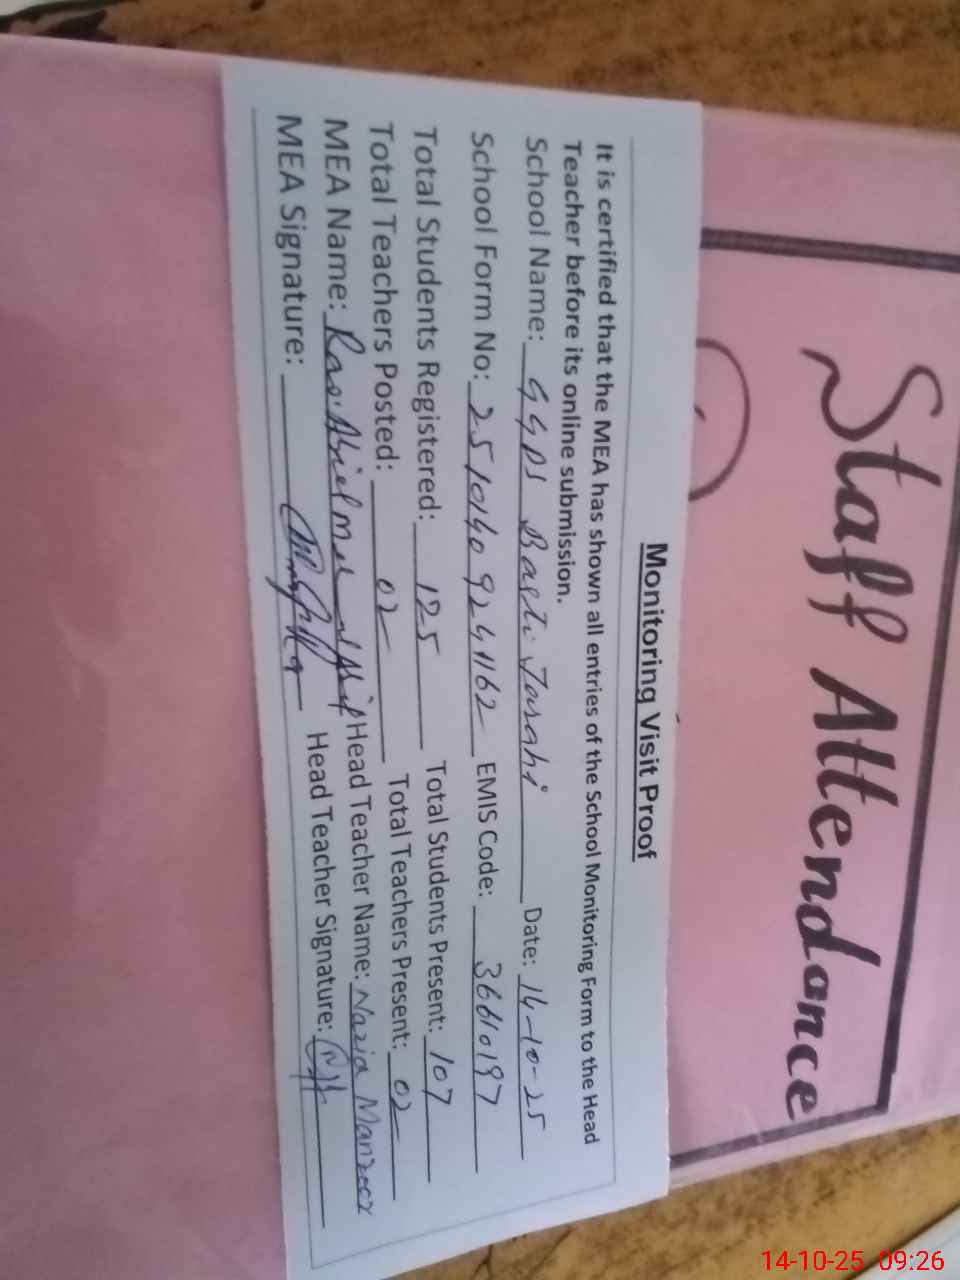 Staff Attendance
Monitoring Visit Proof
It is certified that the MEA has shown all entries of the School Monitoring Form to the Head
Teacher before its online submission.
School Name: GGPS Basti Date: 14-10-25
School Form No: 25101409241162 EMIS Code: 36610197
Total Students Registered: 125 Total Students Present: 107
Total Teachers Posted: 02 Total Teachers Present: 02
MEA Name: Rao Head Teacher Name: Nazia Manzoor
MEA Signature: Head Teacher Signature:
14-10-25 09:26